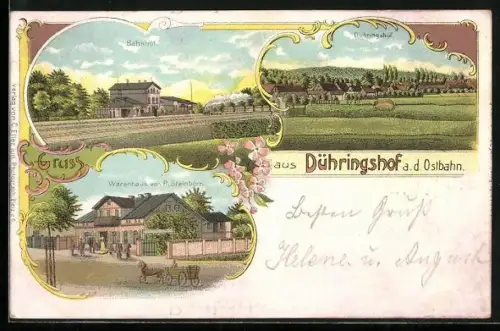 Bahnhof.
Dühringshof.
Gruss
aus Dühringshof a. d. Ostbahn.
Warenhaus von P. Steinborn.
Besten Gruß
Helene u. August